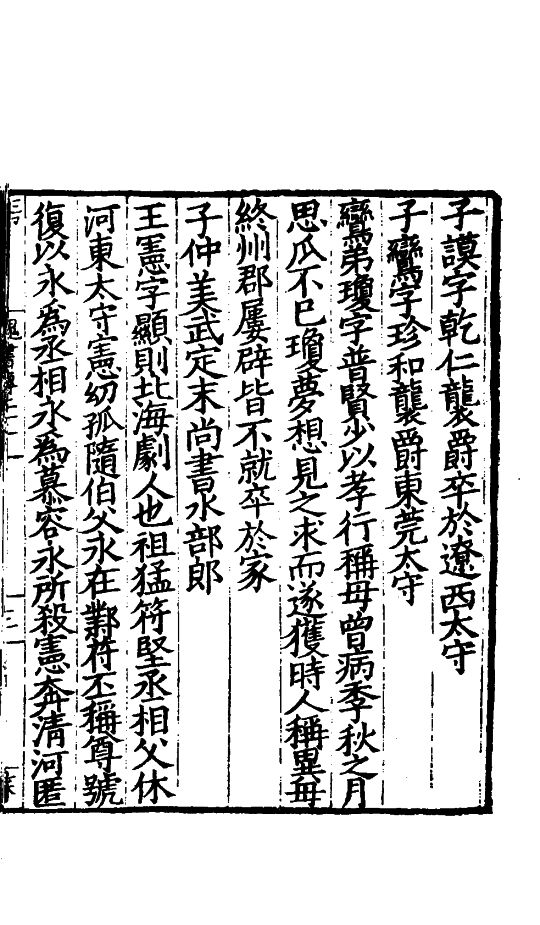 子謨字乾仁襲爵卒於遼西太守
子鸞字珍和襲爵東莞太守
鸞弟瓊字普賢少以孝行稱母曾病季秋之月
思瓜不已瓊夢想見之求而遂獲時人稱異母
終州郡屢辟皆不就卒於家
子仲美武定末尚書水部郎
王憲字顯則北海劇人也祖猛苻堅丞相父休
河東太守憲幼孤隨伯父永在鄴苻丕稱尊號
復以永為丞相永為慕容永所殺憲奔清河匿